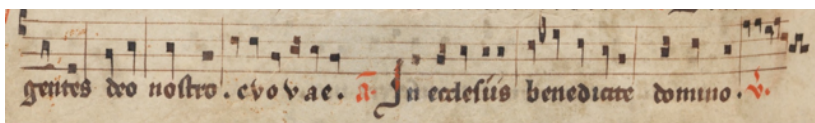 gentes deo nostro. evovae. a. In ecclesiis benedicite domino. v.